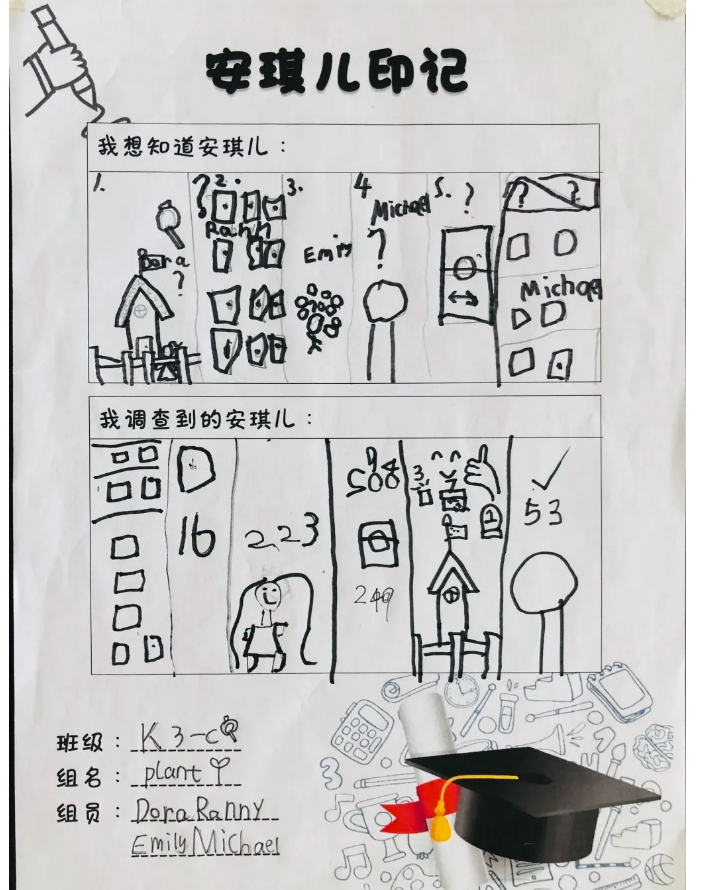 安琪儿印记
我想知道安琪儿：
1.
? 2.
3.
4
5. ?
? ?
Michael
Ranny
Dora
?
Emily
?
Michael
我调查到的安琪儿：
3
✓
16
223
53
249
班级：K3-C
组名：plant
组员：Dora Ranny
Emily Michael